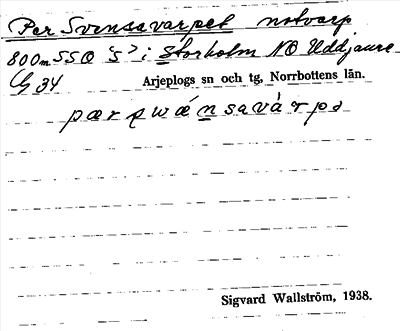 Per Svensavarpet notvarp
800m SSO 'S' i Storholm NO Uddjaure
Cg 34
Arjeplogs sn och tg, Norrbottens län.
Sigvard Wallström, 1938.